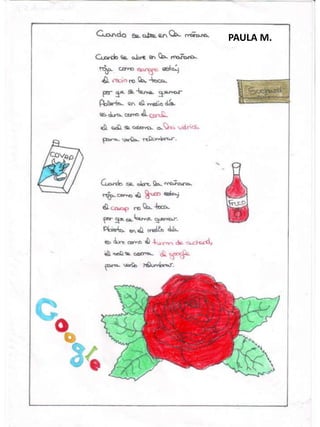 PAULA M.
Cuando se abre en la mañana
Cuando se abre en la mañana
roja como sangre está;
el rocío no la toca
por que se teme quemar
Abierta en el medio día
es dura como el coral
el sol se asoma a los vidrios
para verla relumbrar.
Suchard
COVAP
FRUCO
Cuando se abre la mañana
roja como el fruco está;
el covap no la toca
por que se teme quemar.
Abierta en el medio día
es dura como el turrón de suchard,
el sol se asoma al google
para verla relumbrar.
Google